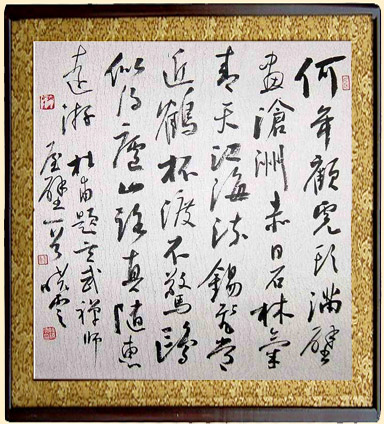 何年顧虎頭滿壁
畫滄洲赤日石林氣
青天江海流錫飛常
近鶴杯渡不驚鷗
似得廬山路真隨惠
遠游 杜甫題玄武禪師
屋壁一首